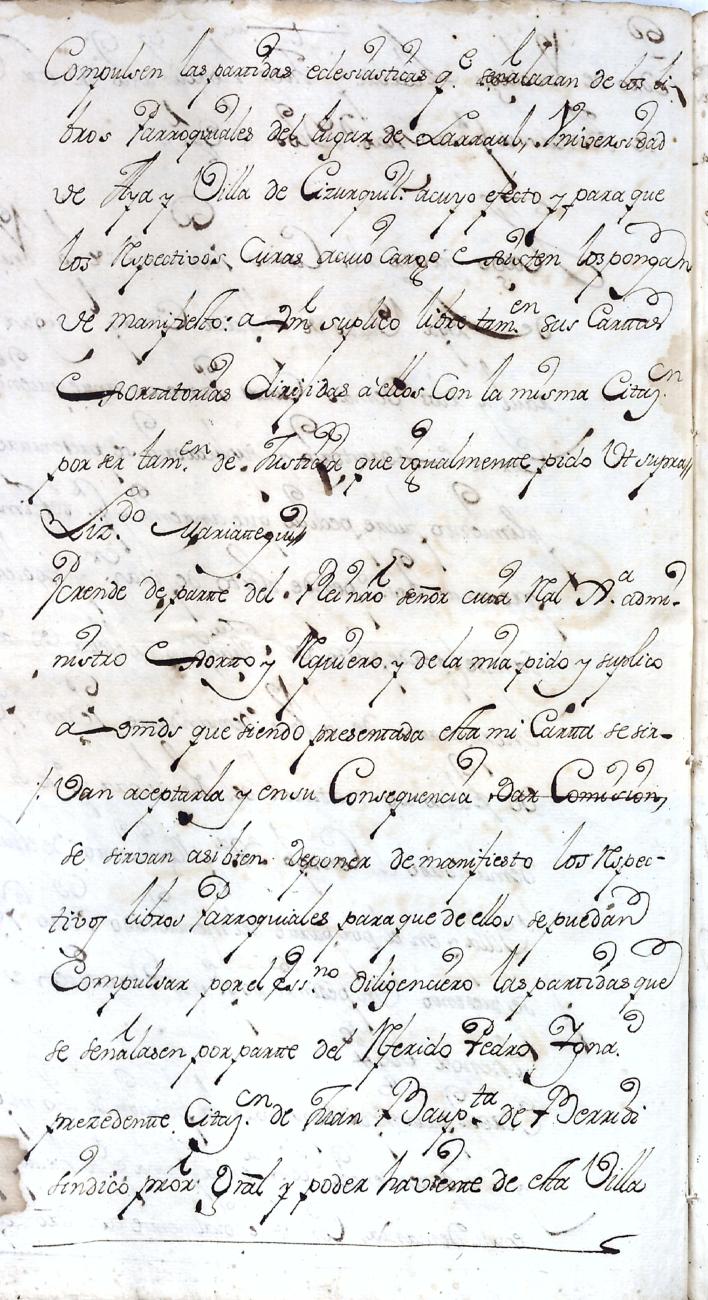 Compulsen las partidas eclesiasticas q.e señalaran de los li-
bros Parroquiales del lugar de Larraul, Universidad
de Aya y Villa de Cizurquil: acuyo efecto y para que
los respectivos Curas acuio Cargo existen los pongan
de manifiesto: a Vm. suplico libre tam.en sus Carttas
exortatorias dirijidas a ellos Con la misma Citaz.on
por ser tam.en de Justicia que igualmente pido Ut supra//
Liz.do Mariattegui
Por ende de partte del Rei nro señor cuia Real
nistro exortto y requiero y de la mia pido y suplico
a Vmds que siendo presenttada esta mi Cartta se sir-
van aceptarla y en su Consequencia dar Comision,
se sirvan asibien deponer de manifiesto los respec-
tivos libros Parroquiales para que de ellos se puedan
Compulsar por el Ess.no diligenciero las partidas que
se señalasen por partte del referido Pedro Igna.
prezedente Citaz.on de Juan Baup.ta de Berridi
sindico pror. Gral y poder haviente de esta Villa